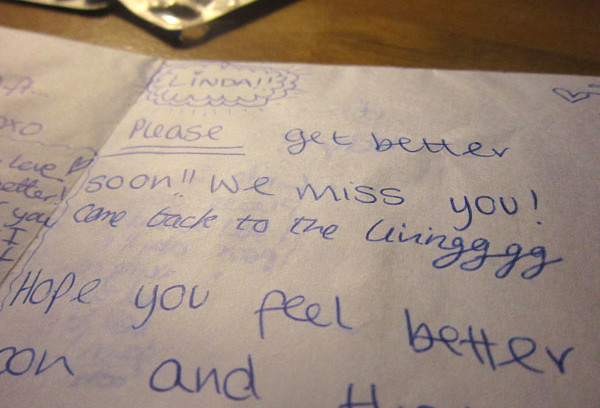 LINDA!!
Please get better
soon!! We miss you!
come back to the livingggg
Hope you feel better
oon and
xo
Love
etter!
you
I